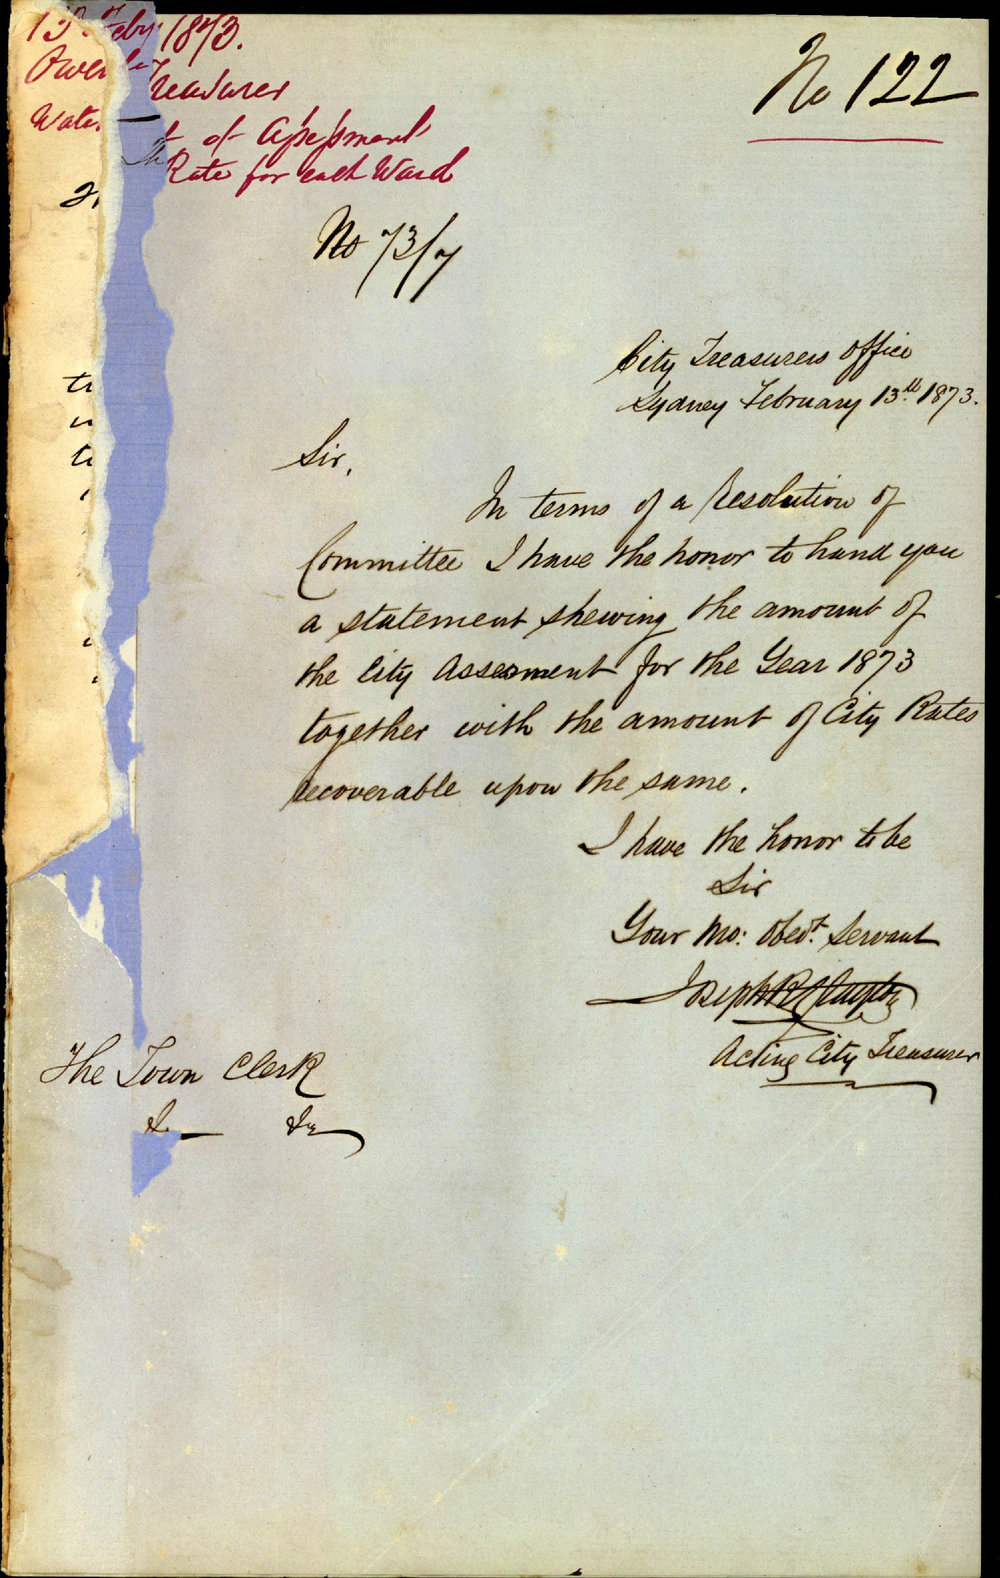 13th Feby 1873.
Treasurer
of Assessment
Rate for each Ward
No 122
No 73/7
City Treasurers Office
Sydney February 13th 1873.
Sir,
In terms of a Resolution of
Committee I have the honor to hand you
a statement shewing the amount of
the City Assesment for the Year 1873
together with the amount of City Rates
recoverable upon the same.
I have the honor to be
Sir
Your Mo: Obedt. Servant
Joseph R Clayton
Acting City Treasurer
The Town Clerk